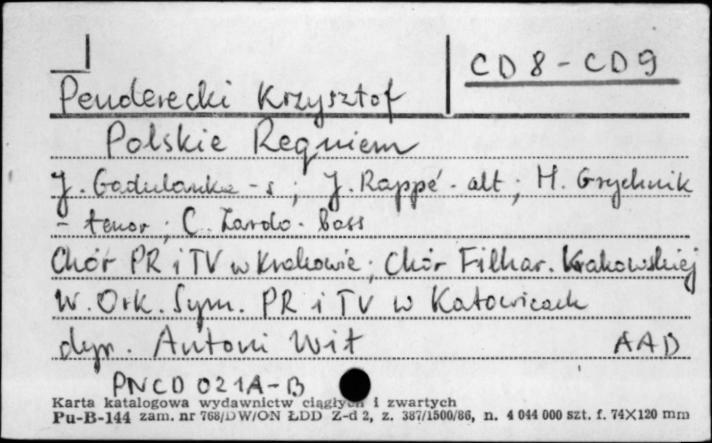 CD8 - CD9
Penderecki Krzysztof
Polskie Requiem
J. Gadulanka - s ; J. Rappé - alt ; H. Grychnik
- tenor ; C. Zardo - bass
Chór PR i TV w Krakowie ; Chór Filhar. Krakowskiej
W. Ork. Sym. PR i TV w Katowicach
dyr. Antoni Wit AAD
PNCD 021A-B
Karta katalogowa wydawnictw ciągłych i zwartych
Pu-B-144 zam. nr 768/DW/ON ŁDD Z-d 2, z. 387/1500/86, n. 4 044 000 szt. f. 74X120 mm